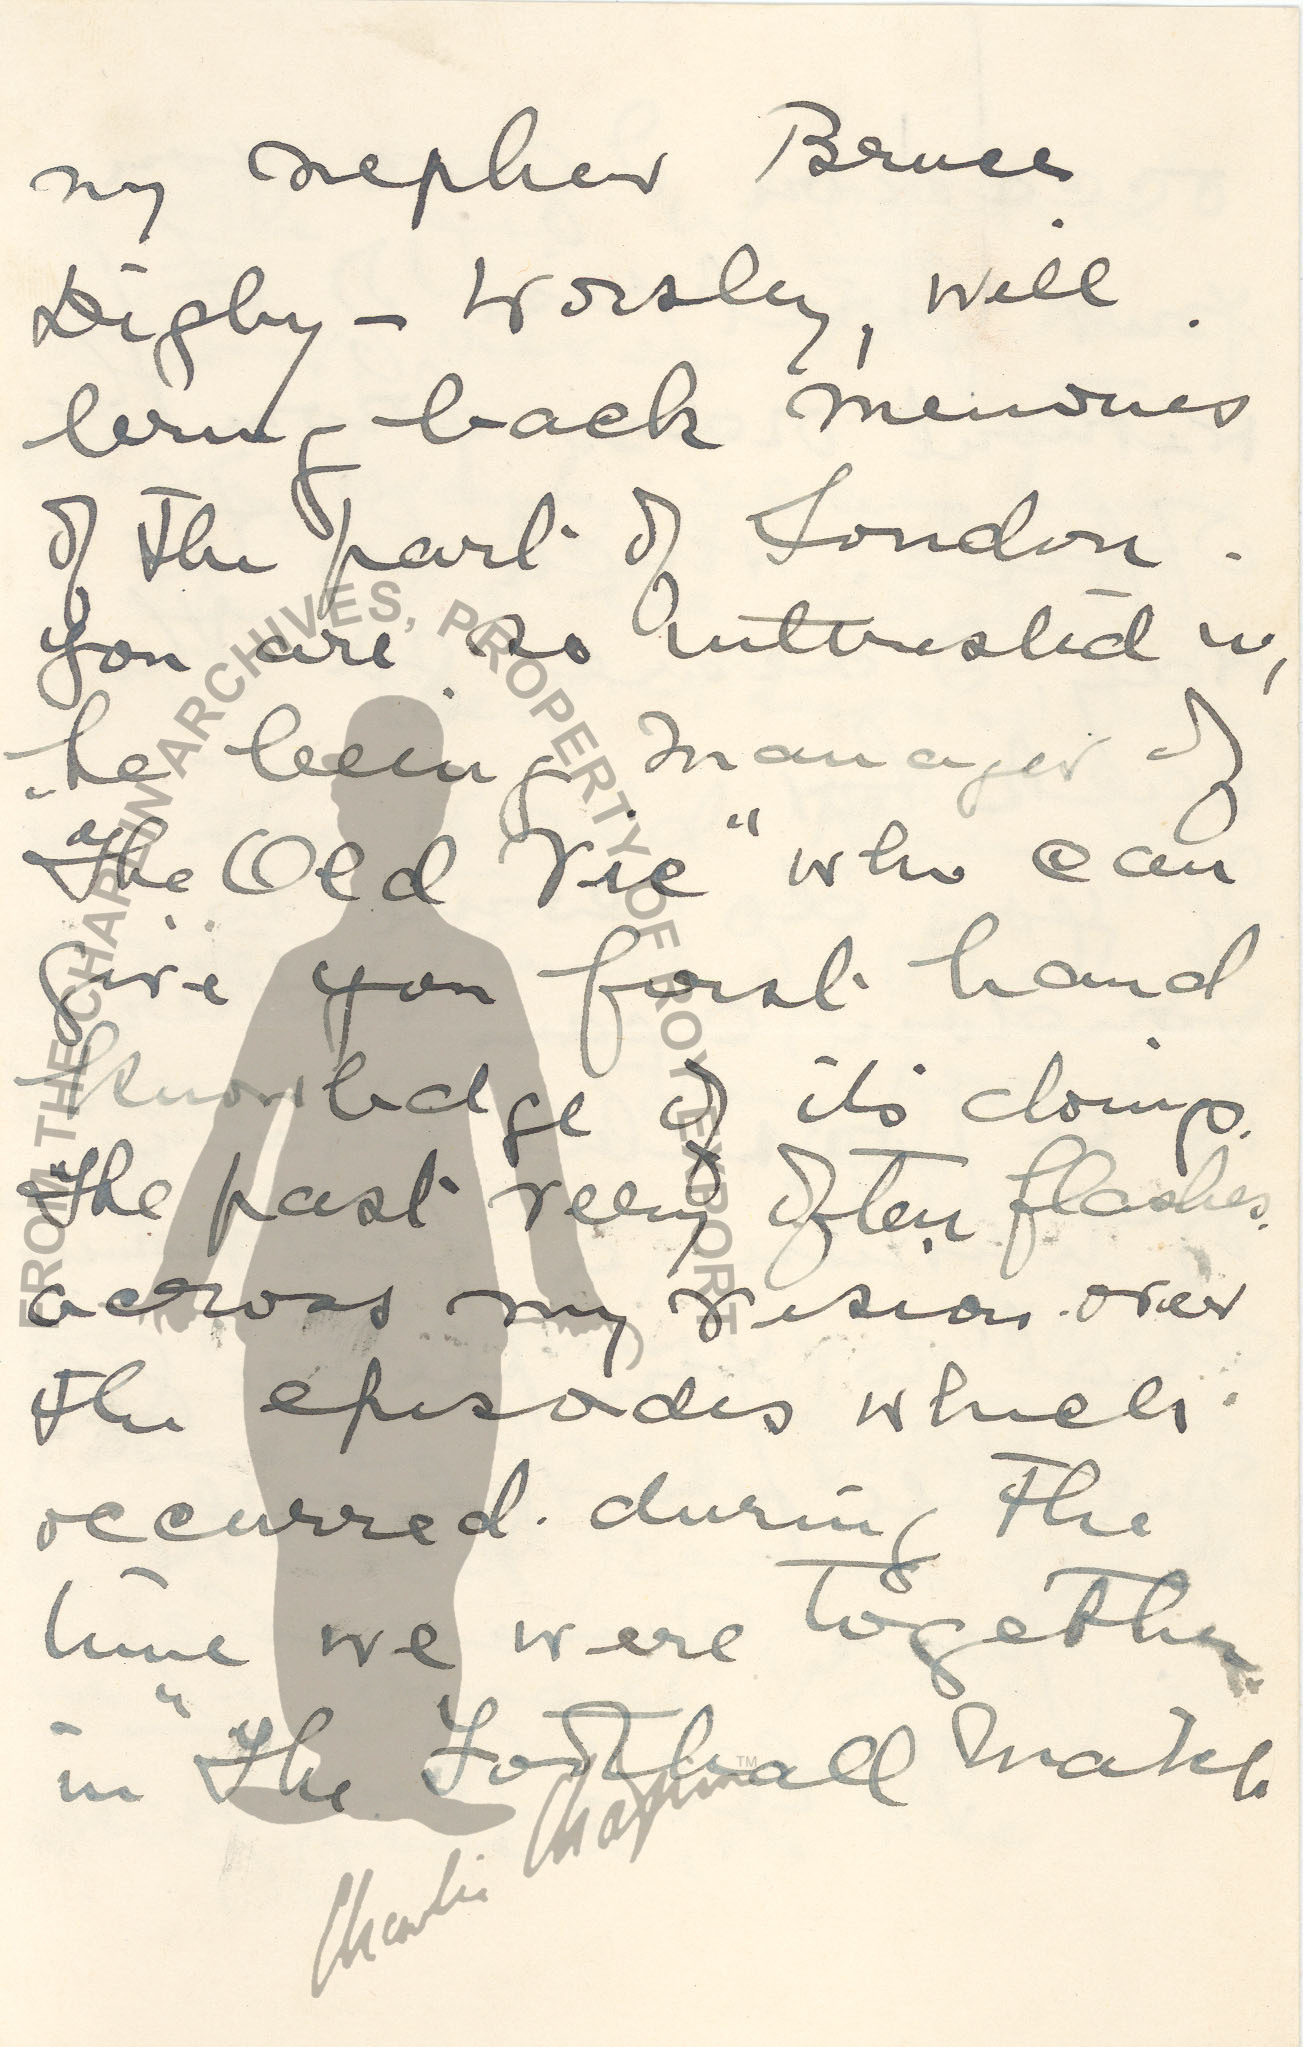 my nephew Bruce
Digby - Worsley, will
bring back memories
of the part of London
you are so interested in,
he being manager of
"The Old Vic" who can
give you first hand
knowledge of its doings.
The past very often flashes
across my vision over
the episodes which
occurred during the
time we were together
in "The Football Match
FROM THE CHAPLIN ARCHIVES, PROPERTY OF ROY EXPORT
Charlie Chaplin™